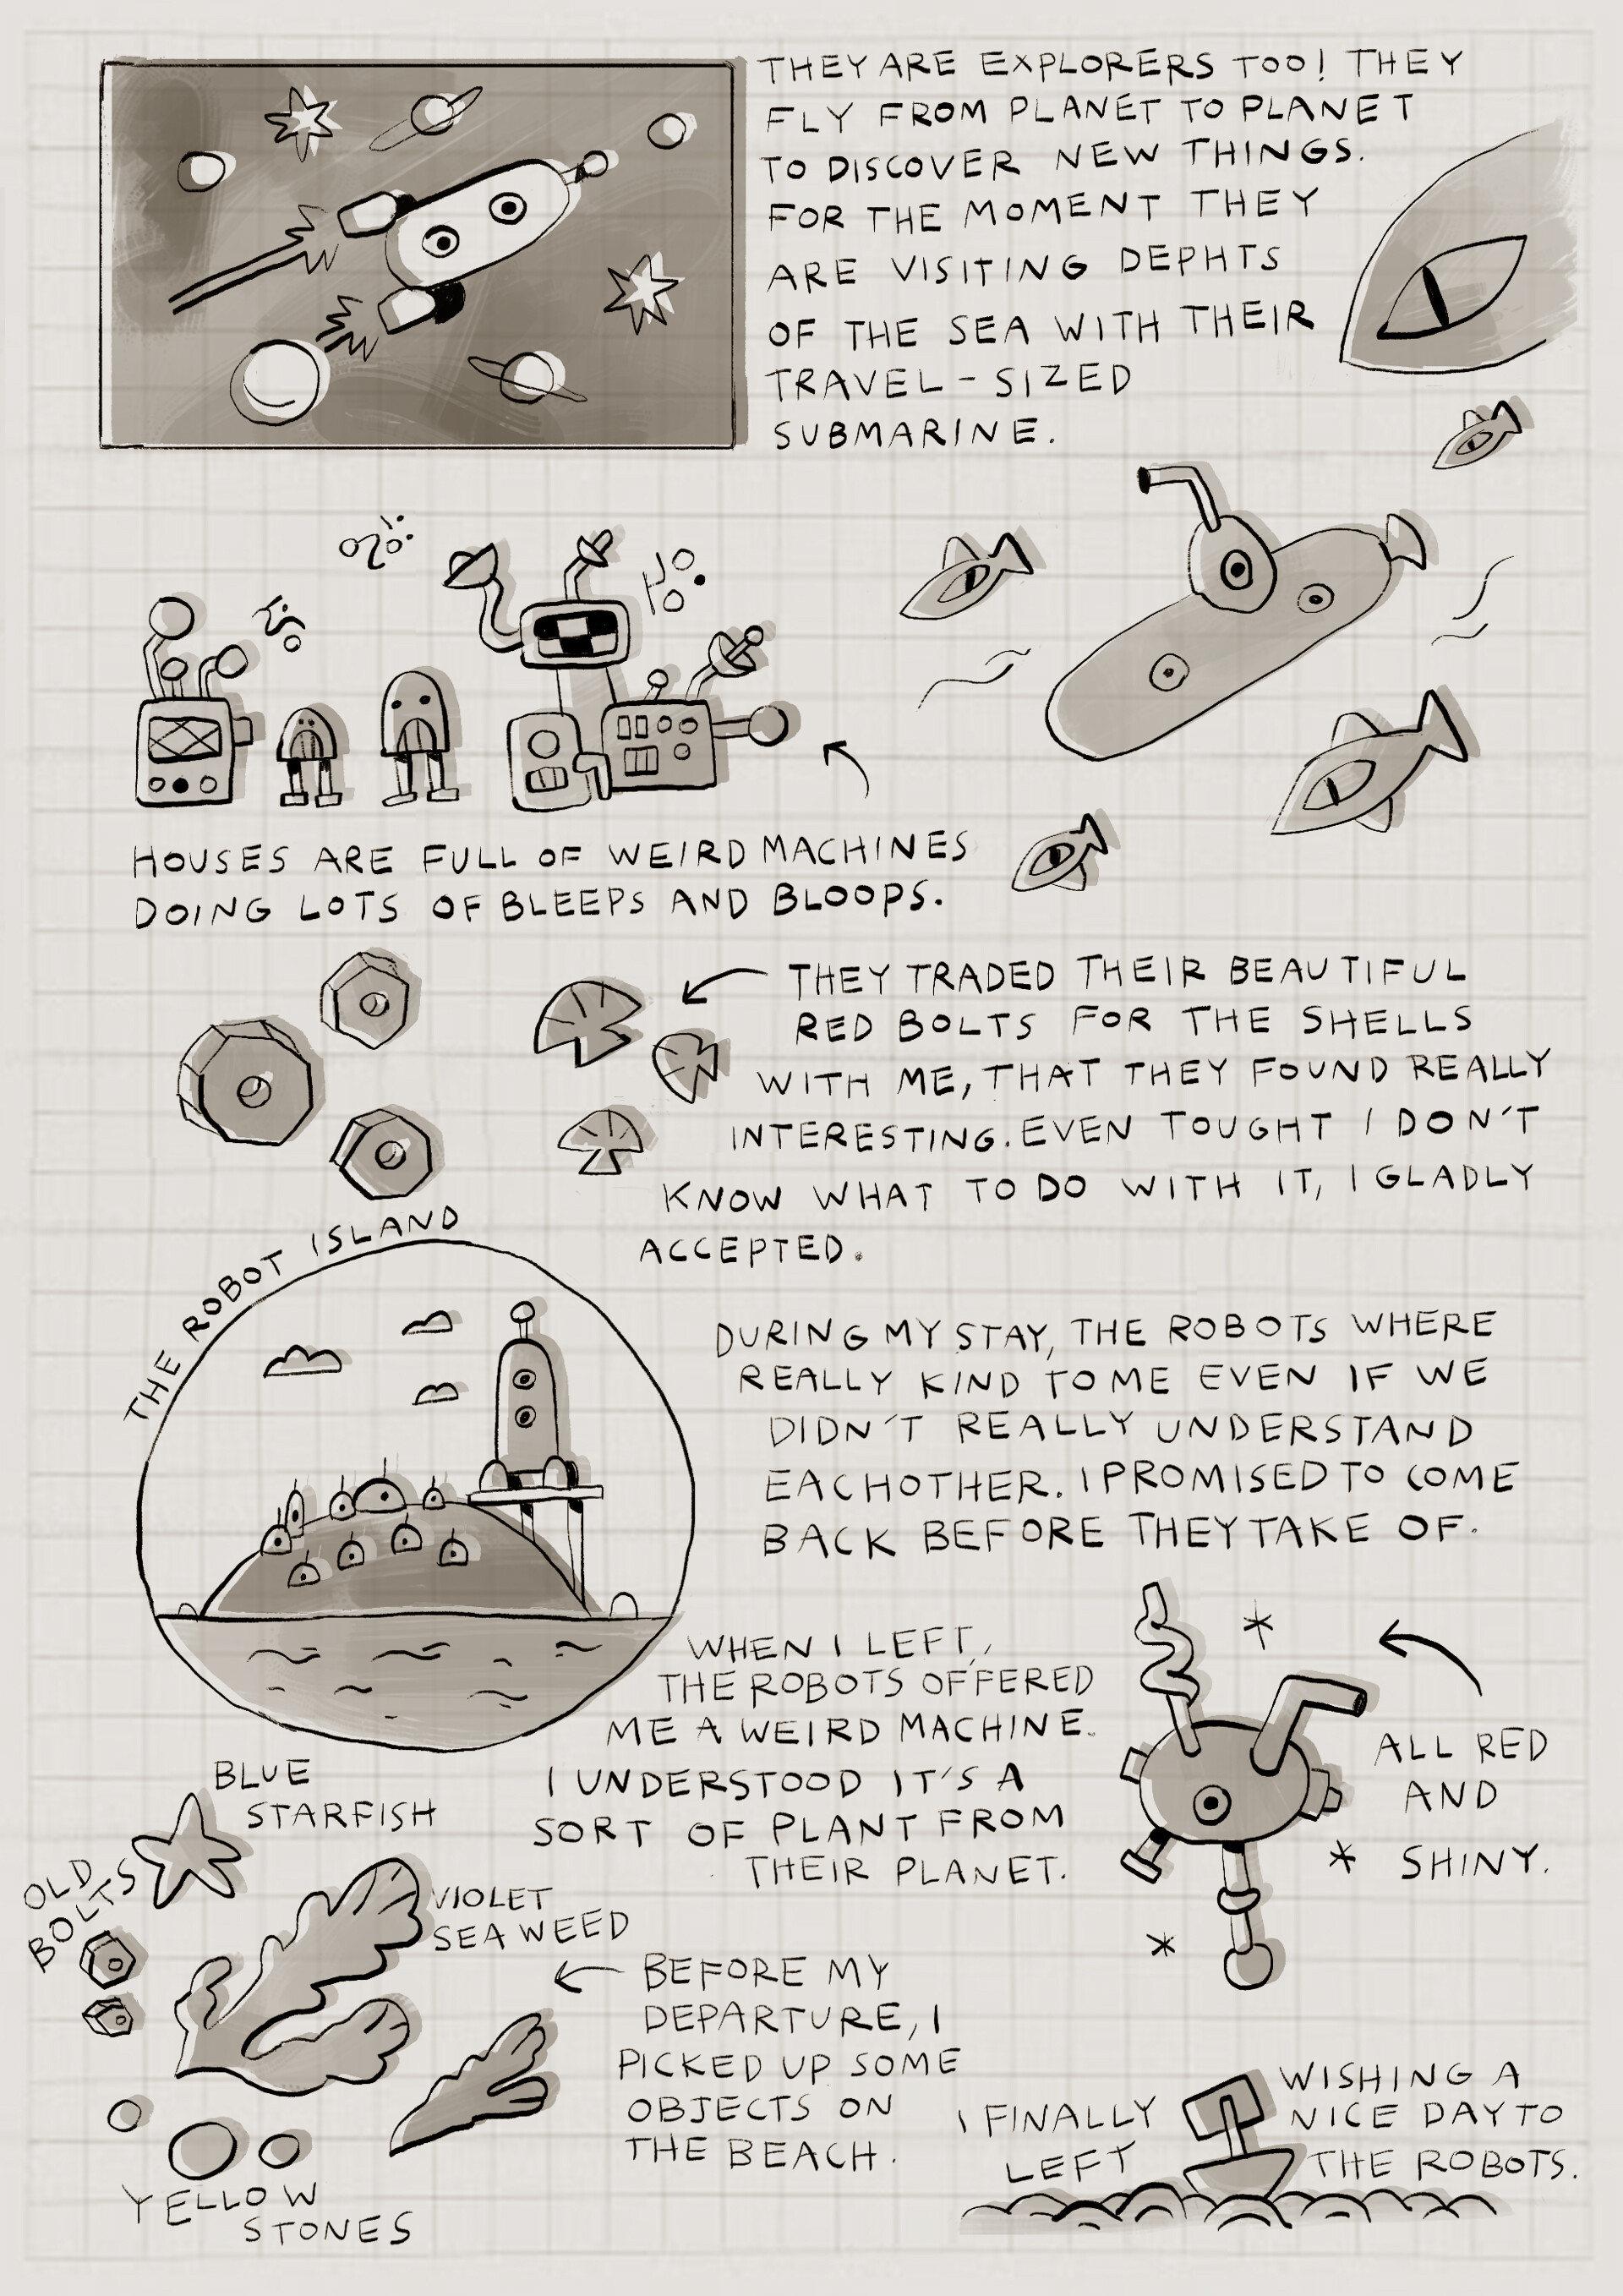 THEY ARE EXPLORERS TOO! THEY
FLY FROM PLANET TO PLANET
TO DISCOVER NEW THINGS.
FOR THE MOMENT THEY
ARE VISITING DEPHTS
OF THE SEA WITH THEIR
TRAVEL-SIZED
SUBMARINE.
HOUSES ARE FULL OF WEIRD MACHINES
DOING LOTS OF BLEEPS AND BLOOPS.
THEY TRADED THEIR BEAUTIFUL
RED BOLTS FOR THE SHELLS
WITH ME, THAT THEY FOUND REALLY
INTERESTING. EVEN TOUGHT I DON'T
KNOW WHAT TO DO WITH IT, I GLADLY
ACCEPTED.
THE ROBOT ISLAND
DURING MY STAY, THE ROBOTS WHERE
REALLY KIND TO ME EVEN IF WE
DIDN'T REALLY UNDERSTAND
EACHOTHER. I PROMISED TO COME
BACK BEFORE THEY TAKE OF.
WHEN I LEFT,
THE ROBOTS OFFERED
ME A WEIRD MACHINE.
I UNDERSTOOD IT'S A
SORT OF PLANT FROM
THEIR PLANET.
ALL RED
AND
SHINY.
BLUE
STARFISH
OLD
BOLTS
VIOLET
SEAWEED
YELLOW
STONES
BEFORE MY
DEPARTURE, I
PICKED UP SOME
OBJECTS ON
THE BEACH.
I FINALLY
LEFT
WISHING A
NICE DAY TO
THE ROBOTS.